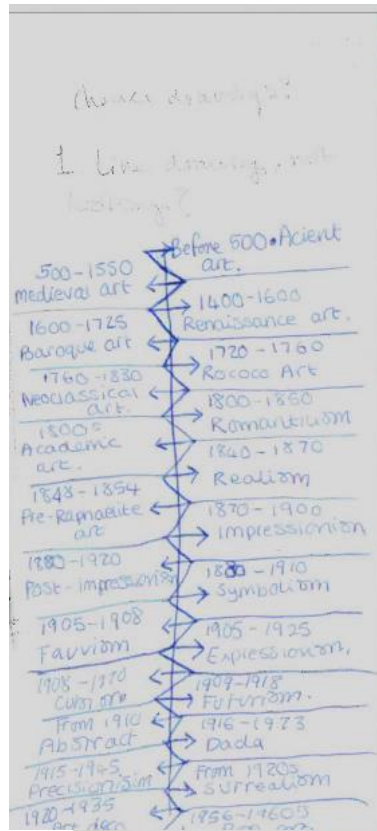 drawings?
1 like drawing, not
Before 500•Acient
art.
500-1550
medieval art
1400-1600
Renaissance art.
1600-1725
Baroque art
1720-1760
Rococo Art
1760-1830
Neoclassical
art.
1800-1850
Romanticism
1800s
Academic
art.
1840-1870
Realism
1848-1854
Pre-Raphaelite
art
1870-1900
Impressionism
1880-1920
Post-impressionism
1880-1910
Symbolism
1905-1908
Fauvism
1905-1925
Expressionism.
1908-1920
Cubism
1909-1918
Futurism.
From 1910
Abstract
1916-1923
Dada
1915-1945
Precisionisim
From 1920s
Surrealism
1920-1935
Art deco
1956-1960s